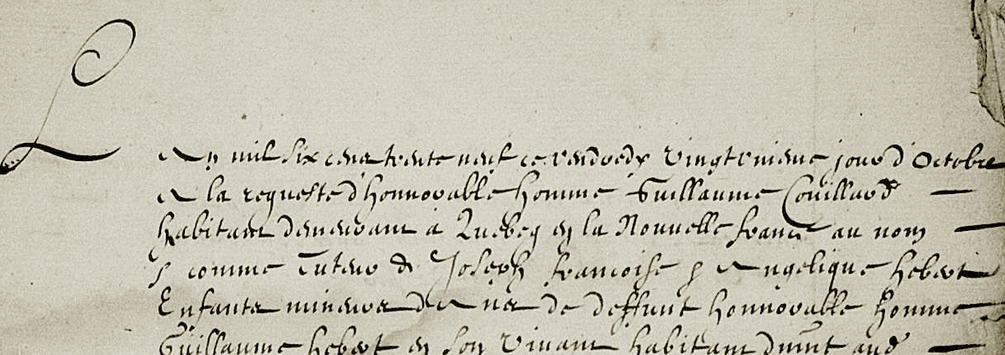 L An mil six cens trente neuf ce vendredy vingtnieme jour d'Octobre
A la requeste d'honnorable homme Guillaume Couillard
habitant demeurant à Quebeq en la Nouvelle france au nom
& comme Tuteur de Joseph francoise & Angelique hebert
Enfants mineurs de de deffunt honnorable homme
Guillaume hebert en son vivant habitant dud